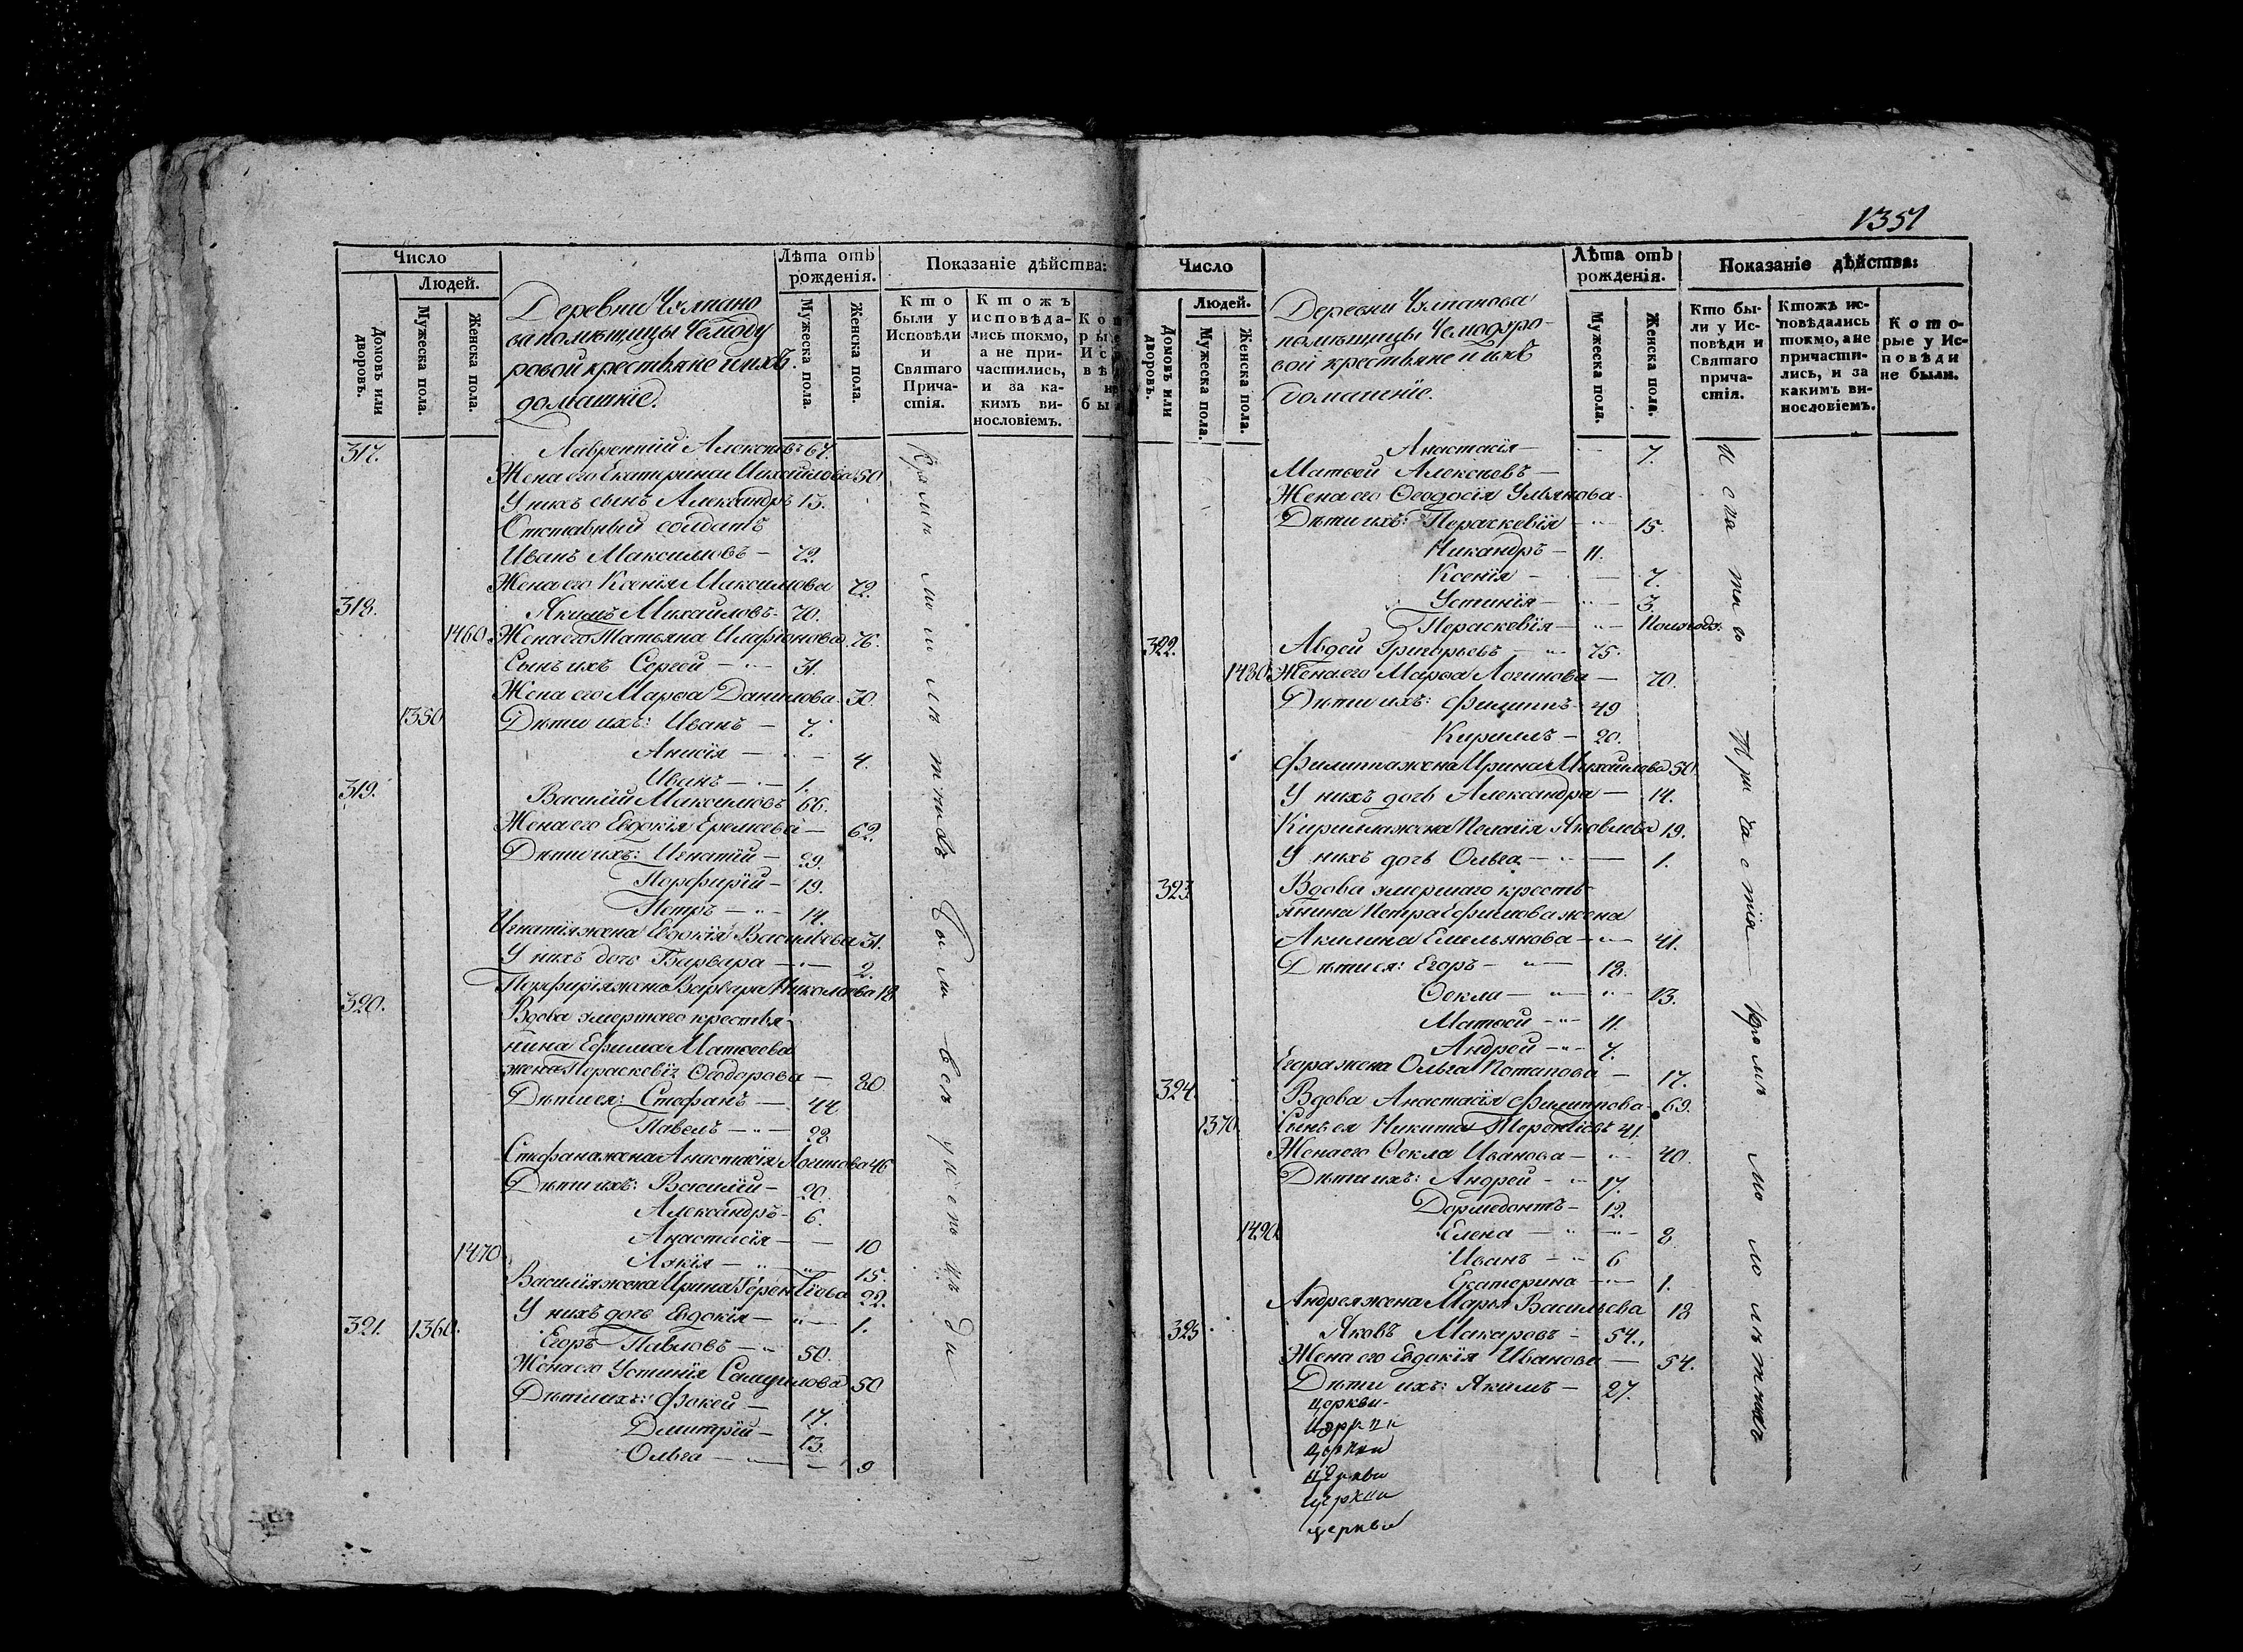 Число
Людей.
Домовъ или дворовъ.
Мужеска пола.
Женска пола.
Деревни Чулпано
ва помѣщицы Чемоду
ровой крестьяне и ихъ
домашніе.
Лѣта отъ рожденія.
Мужеска пола.
Женска пола.
Показаніе дѣйства:
Кто были у Исповѣди и Святаго Причастія.
Ктожъ исповѣдались токмо, а не причастились, и за какимъ винословіемъ.
317. Лаврентій Алексѣевъ 67.
Жена его Екатерина Михайлова 50
У нихъ сынъ Александръ 15.
Отставный солдатъ
Иванъ Максимовъ — 72.
Жена его Ксенія Максимова 72.
318. Якимъ Михайловъ — 70.
1460 Жена его Татьяна Иларіонова 76.
Сынъ ихъ Сергей — 31.
Жена его Марѳа Данилова 30
1350 Дѣти ихъ: Иванъ — 7.
Анисія — 4.
Иванъ — 1.
319. Василій Максимовъ 66.
Жена его Евдокія Еремеева — 62.
Дѣти ихъ: Игнатій — 29.
Порфирій — 19.
Петръ — 14.
Игнатія жена Евдокія Васильева 31.
У нихъ дочь Варвара — 2.
Порфирія жена Варвара Николаева 18
320. Вдова умершаго крестья-
нина Ефима Матвеева
жена Пераскевія Ѳеодорова — 80
Дѣти ея: Стефанъ — 44
Павелъ — 28
Стефана жена Анастасія Логинова 46
Дѣти ихъ: Василій — 20.
Александръ — 6.
Анастасія — 10
1470 — 15.
Василія жена Ирина Терентіева 22.
У нихъ дочь Евдокія — 1.
321. 1360. Егоръ Павловъ — 50.
Жена его Устинія Самуилова 50
Дѣти ихъ: Фокей — 17.
Дмитрій — 13.
Ольга — 9
1351
Число
Людей.
Домовъ или дворовъ.
Мужеска пола.
Женска пола.
Деревни Чулпанова
помѣщицы Чемодуро-
вой крестьяне и ихъ
домашніе.
Лѣта отъ рожденія.
Мужеска пола.
Женска пола.
Показаніе дѣйства:
Кто были у Исповѣди и Святаго причастія.
Ктожъ исповѣдались токмо, а не причастились, и за какимъ винословіемъ.
Которые у Исповѣди не были.
Анастасія — 7.
Матвей Алексѣевъ —
Жена его Ѳеодосія Ульянова
Дѣти ихъ: Пераскевія — 15.
Никандръ — 11.
Ксенія — 7.
Устинія — 3.
Пераскевія — Полгода.
322. Авдей Григорьевъ — 75.
1480 Жена его Марѳа Логинова — 70.
Дѣти ихъ: Филиппъ — 49
Кириллъ — 20.
Филиппа жена Ирина Михайлова 50
У нихъ дочь Александра — 14.
Кирилла жена Пелагія Яковлева 19.
У нихъ дочь Ольга — 1.
323 Вдова умершаго кресть-
янина Петра Ефимова жена
Акилина Емельянова — 41.
Дѣти ея: Егоръ — 18.
Ѳекла — 13.
Матвей — 11.
Андрей — 7.
Егора жена Ольга Потапова — 17.
324. Вдова Анастасія Филиппова 69.
1370. Сынъ ея Никита Терентіевъ 41.
Жена его Ѳекла Иванова — 40.
Дѣти ихъ: Андрей — 17.
Дормедонтъ — 12.
1490 Елена — 8
Иванъ — 6
Екатерина — 1.
Андрея жена Марья Васильева 18
325 Яковъ Макаровъ — 54.
Жена его Евдокія Иванова — 54.
Дѣти ихъ: Якимъ — 27.
церкви
церкви
церкви
церкви
церкви
церкви